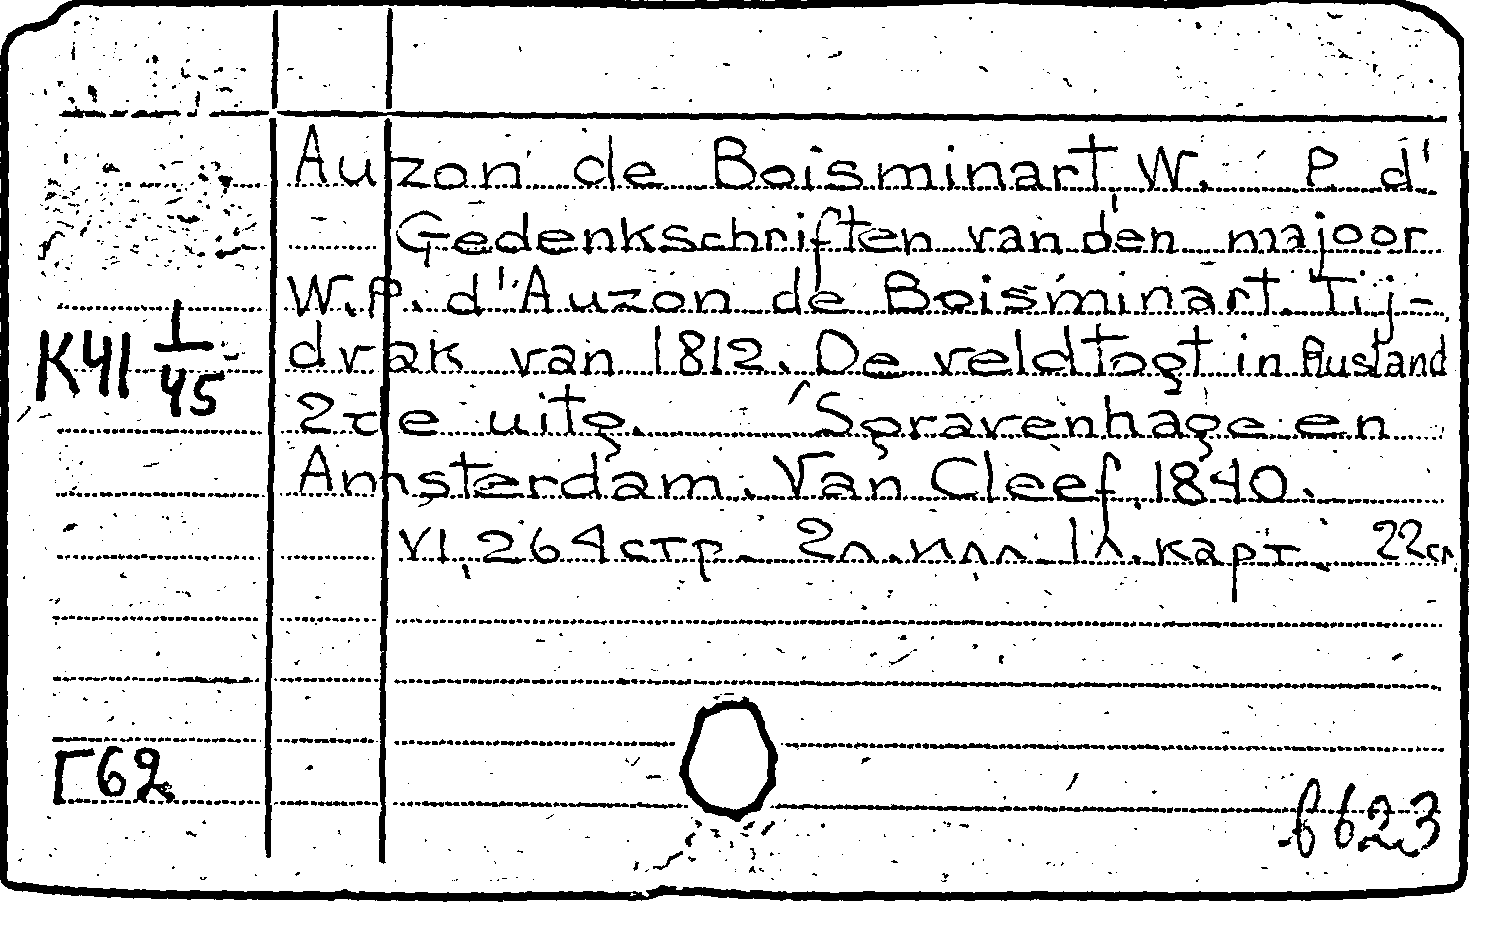 Auzon de Boisminart, W. P. d'
Gedenkschriften van den majoor
W.P. d'Auzon de Boisminart. Tij-
K41 1/45
drak van 1812. De veldtogt in Rusland
2de uitg. 'Sgravenhage en
Amsterdam. Van Cleef, 1840.
VI, 264 стр. 2 л. илл., 1 л. карт. 22см
Г62
6623